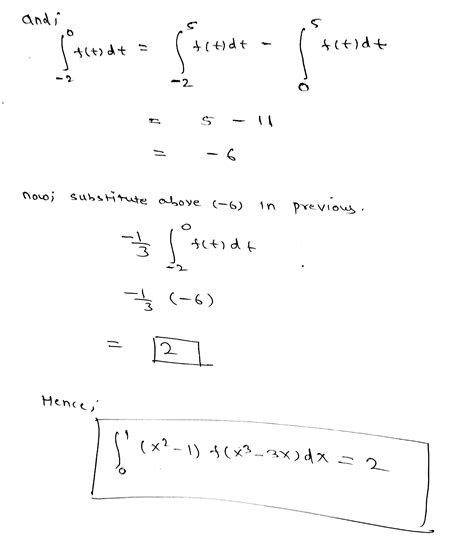 and;
∫_{-2}^{0} f(t)dt = ∫_{-2}^{5} f(t)dt - ∫_{0}^{5} f(t)dt
= 5 - 11
= -6
now; substitute above (-6) in previous.
-1/3 ∫_{-2}^{0} f(t)dt
-1/3 (-6)
= 2
Hence;
∫_{0}^{1} (x²-1) f(x³-3x)dx = 2